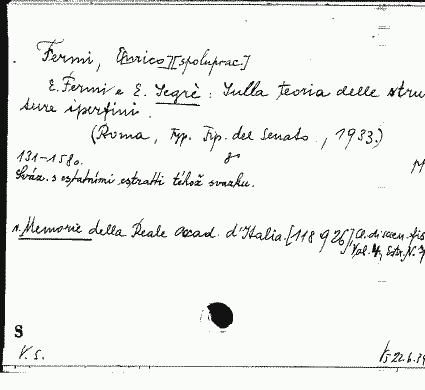 Fermi, Enrico][spoluprac.]
E. Fermi e E. Segrè: Sulla teoria delle stru
ture iperfini.
(Roma, Typ. Tip. del Senato, 1933.)
131-158 o. 8°
Sváz. s ostatními estratti téhož svazku.
Memorie della Reale Accad. d'Italia. [118 926] Cl. di scien. fis
Vol. 4, Estr. N.
S
V. S.
22.6.